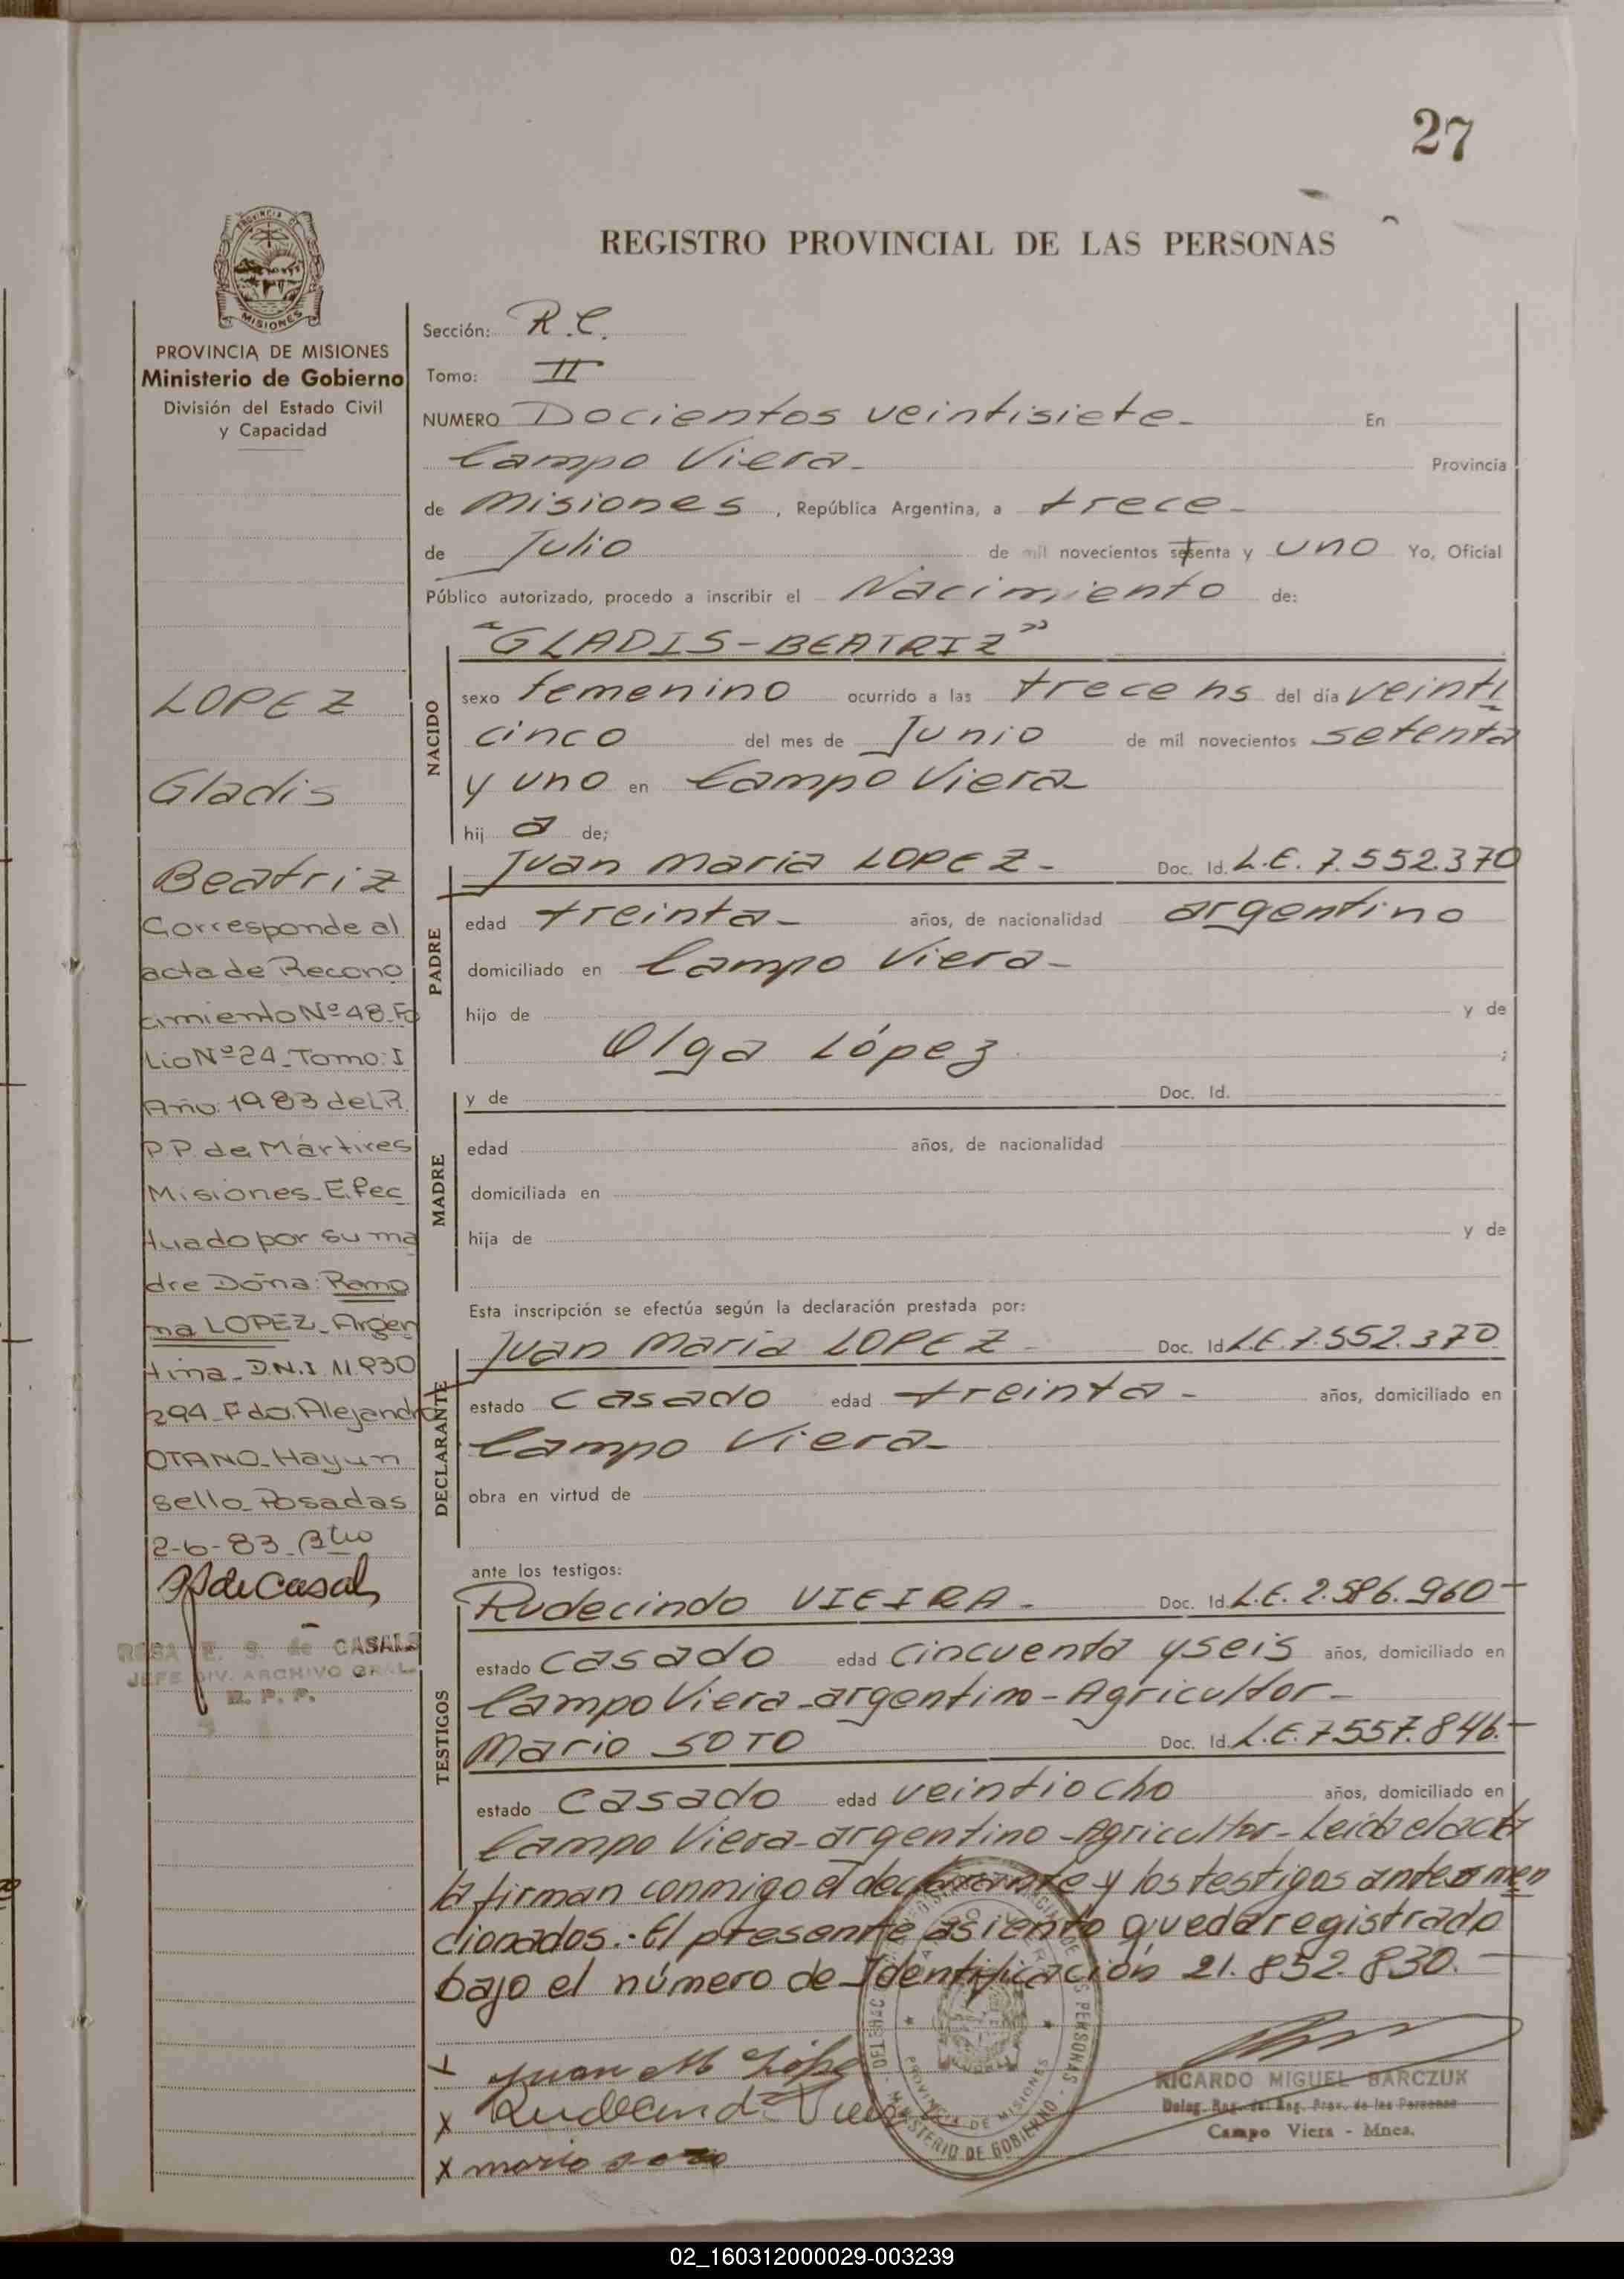 27
REGISTRO PROVINCIAL DE LAS PERSONAS
MISIONES
PROVINCIA DE MISIONES
Ministerio de Gobierno
División del Estado Civil
y Capacidad
LOPEZ
Gladis
Beatriz
Corresponde al
acta de Recono
cimiento Nº 48 Fo
lio Nº 24 - Tomo: I
Año: 1983 del R.
P.P. de Mártires
Misiones - Efec
tuado por su ma
dre Doña: Ramo
na LOPEZ - Argen
tina - D.N.I. 11.930
294 - Fdo. Alejandro
OTANO - Hay un
sello - Posadas
2-6-83
ROSA E. S. de CASALS
JEFE DIV. ARCHIVO GRAL
R. P. P.
Sección: R.C.
Tomo: II
NUMERO Docientos veintisiete - En
Campo Viera - Provincia
de Misiones , República Argentina, a trece -
de Julio de mil novecientos setenta y uno Yo, Oficial
Público autorizado, procedo a inscribir el Nacimiento de:
"GLADIS-BEATRIZ"
NACIDO
sexo femenino ocurrido a las trece hs del día veinti
cinco del mes de Junio de mil novecientos setenta
y uno en Campo Viera
hij a de;
PADRE
Juan Maria LOPEZ - Doc. Id. L.E. 7.552.370
edad treinta - años, de nacionalidad argentino
domiciliado en Campo Viera -
hijo de y de
Olga López ;
MADRE
y de Doc. Id.
edad años, de nacionalidad
domiciliada en
hija de y de
Esta inscripción se efectúa según la declaración prestada por:
DECLARANTE
Juan Maria LOPEZ - Doc. Id L.E. 7.552.370
estado casado edad treinta - años, domiciliado en
Campo Viera -
obra en virtud de
ante los testigos:
TESTIGOS
Rudecindo VIEIRA - Doc. Id. L.E. 2.586.960 -
estado casado edad cincuenta y seis años, domiciliado en
Campo Viera - argentino - Agricultor -
Mario SOTO Doc. Id. L.E. 7.557.846. -
estado casado edad veintiocho años, domiciliado en
Campo Viera - argentino - Agricultor - Leida el acta
la firman conmigo el declarante y los testigos antes men
cionados.- El presente asiento queda registrado
bajo el número de Identificación 21.852.830. -
x Juan M López
x
x mario soto
PROVINCIA DE MISIONES
MINISTERIO DE GOBIERNO
RICARDO MIGUEL BARCZUK
Deleg. Reg. del Reg. Prov. de las Personas
Campo Viera - Mnes.
02_160312000029-003239